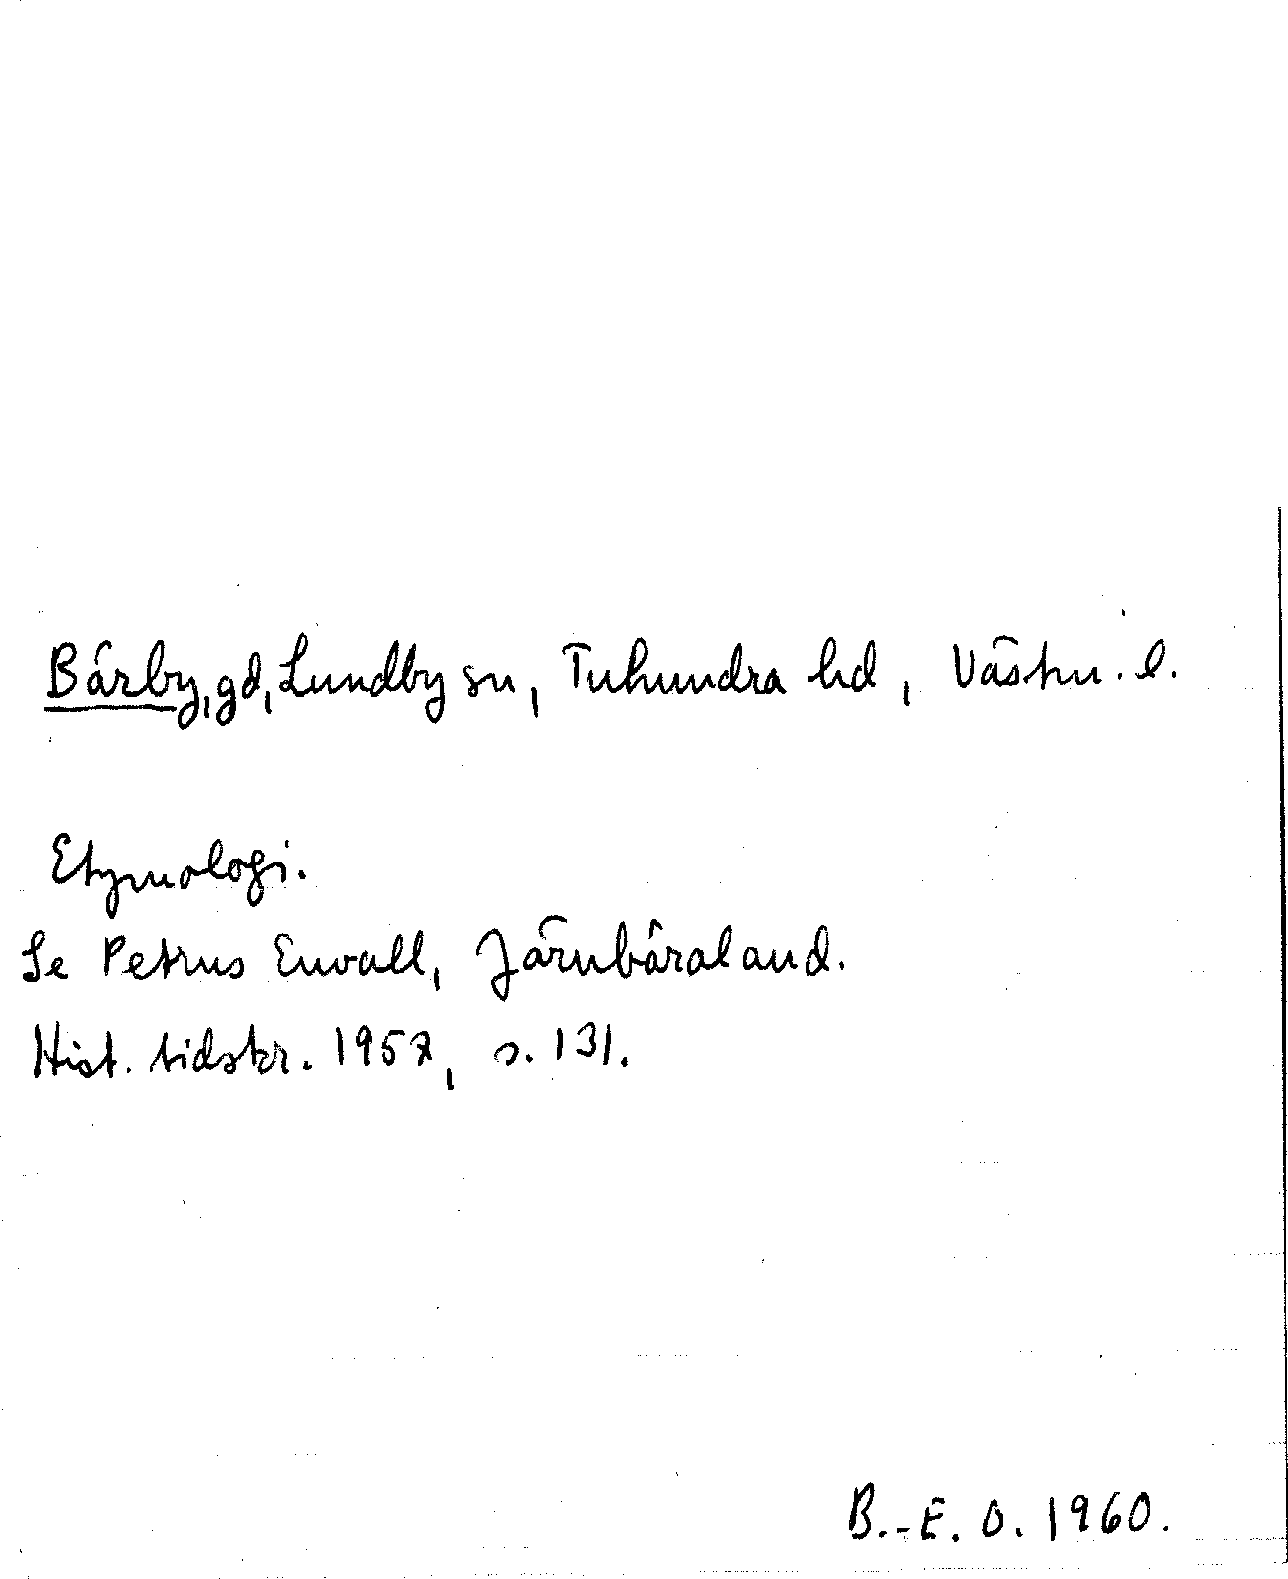 Bärby, gd, Lundby sn, Tuhundra hd, Västm. l.
Etymologi.
Se Petrus Envall, Järnbäraland.
Hist. tidskr. 1957, s. 131.
B.-E. O. 1960.